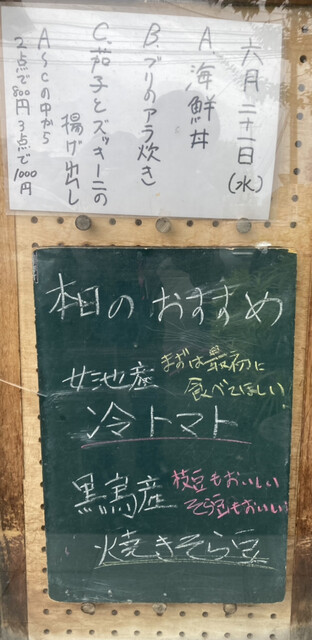 六月二十一日(水)
A. 海鮮丼
B. ブリのアラ炊き
C. 茄子とズッキーニの
揚げ出し
A〜Cの中から
2点で800円 3点で1000円
本日のおすすめ
女池産
まずは最初に
食べてほしい
冷トマト
黒鳥産
枝豆もおいしい
そら豆もおいしい
焼きそら豆